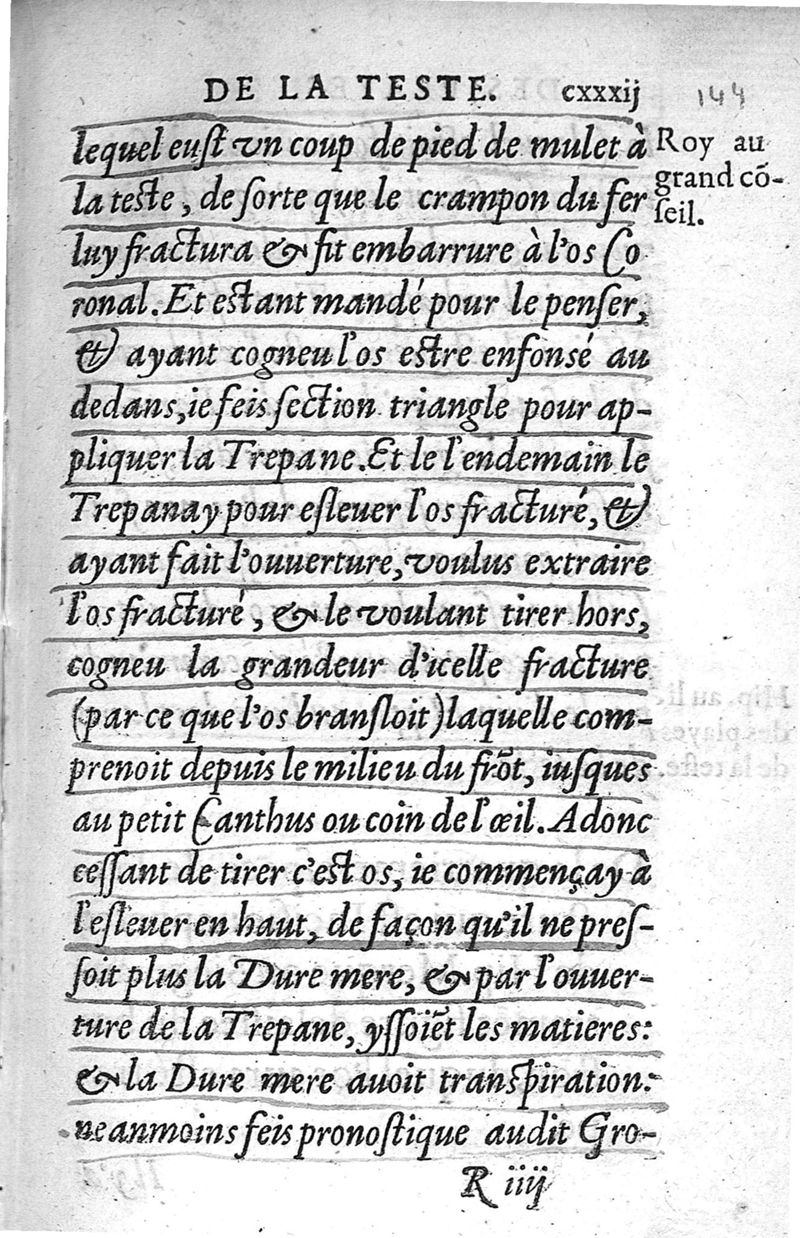 DE LA TESTE. cxxxij 144
lequel eust vn coup de pied de mulet à
la teste, de sorte que le crampon du fer
luy fractura & fit embarrure à l'os Co
ronal. Et estant mandé pour le penser,
& ayant cogneu l'os estre enfonsé au
dedans, ie feis section triangle pour ap-
pliquer la Trepane. Et le l'endemain le
Trepanay pour esleuer l'os fracturé, &
ayant fait l'ouuerture, voulus extraire
l'os fracturé, & le voulant tirer hors,
cogneu la grandeur d'icelle fracture
(par ce que l'os bransloit) laquelle com-
prenoit depuis le milieu du frõt, iusques
au petit Canthus ou coin de l'œil. Adonc
cessant de tirer c'est os, ie commençay à
l'esleuer en haut, de façon qu'il ne pres-
soit plus la Dure mere, & par l'ouuer-
ture de la Trepane, yssoiẽt les matieres:
& la Dure mere auoit transpiration:
neanmoins feis pronostique audit Gro-
R iiij
Roy au
grand cõ-
seil.